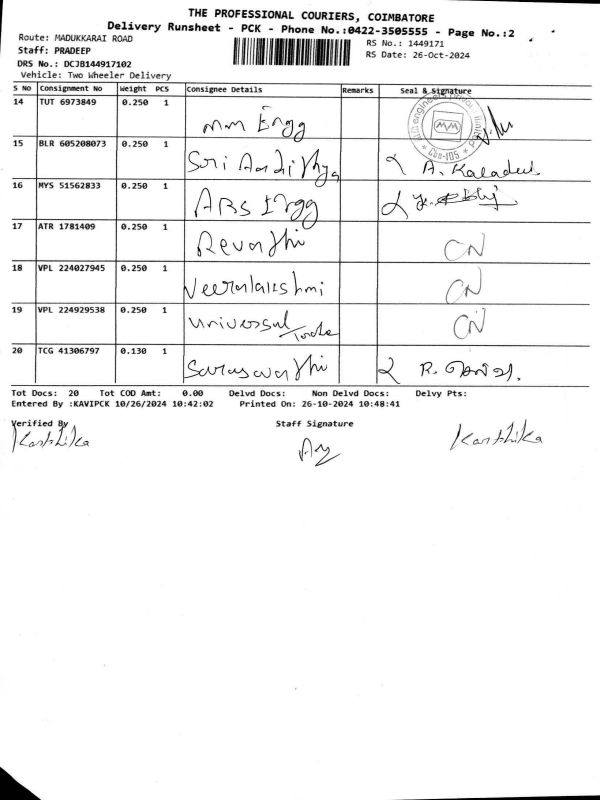 THE PROFESSIONAL COURIERS, COIMBATORE
Delivery Runsheet - PCK - Phone No.:0422-3505555 - Page No.:2
Route: MADUKKARAI ROAD
RS No.: 1449171
Staff: PRADEEP
RS Date: 26-Oct-2024
DRS No.: DCJB144917102
Vehicle: Two Wheeler Delivery
S No Consignment No Weight PCS Consignee Details Remarks Seal & Signature
14 TUT 6973849 0.250 1 mm Engg
15 BLR 605208073 0.250 1 Sri
16 MYS 51562833 0.250 1 ABS Engg
17 ATR 1781409 0.250 1 Revathi CN
18 VPL 224027945 0.250 1 Veeralakshmi CN
19 VPL 224929538 0.250 1 Universal Trade CN
20 TCG 41306797 0.130 1 Saraswathi R.
Tot Docs: 20 Tot COD Amt: 0.00 Delvd Docs: Non Delvd Docs: Delvy Pts:
Entered By :KAVIPCK 10/26/2024 10:42:02 Printed On: 26-10-2024 10:48:41
Verified By Staff Signature
Karthika Karthika